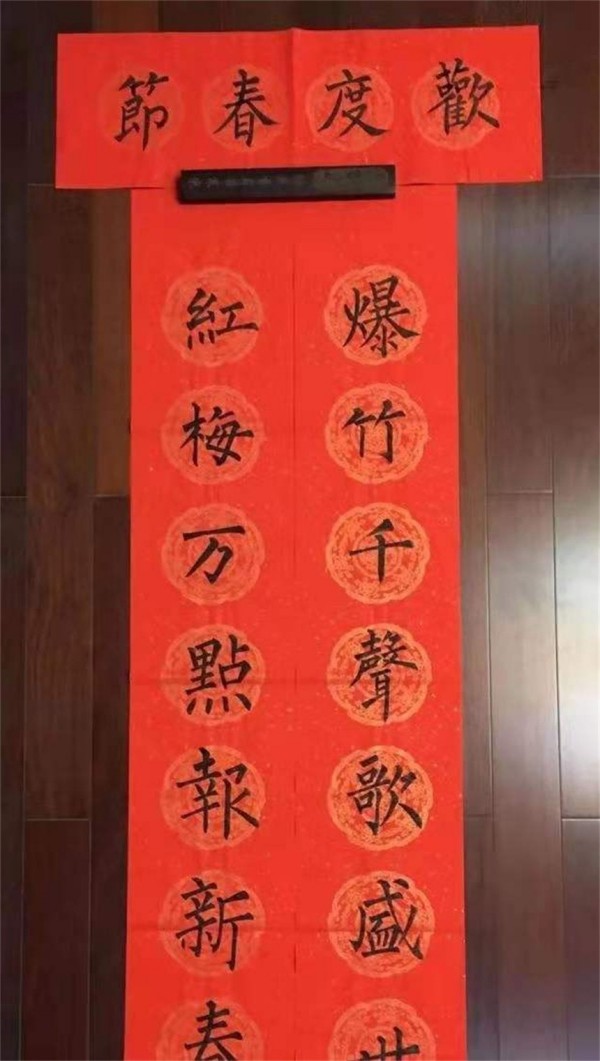 歡度春節
爆竹千聲歌盛世
紅梅万點報新春